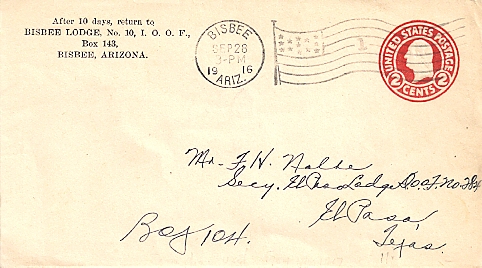 After 10 days, return to
BISBEE LODGE, No. 10, I. O. O. F.,
Box 143,
BISBEE, ARIZONA.
BISBEE
SEP 26
3-PM
1916
ARIZ.
1
UNITED STATES POSTAGE
2 CENTS 2
Mr. F. H.
Secy. El Paso Lodge I.O.O.F. No. 284
El Paso,
Texas.
Box 104.